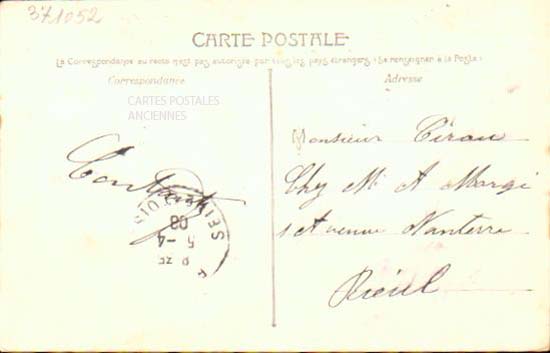 371052
CARTE POSTALE
La Correspondance au recto n'est pas autorisée par tous les pays étrangers (Se renseigner à la Poste)
Correspondance
Adresse
CARTES POSTALES
ANCIENNES
Monsieur Tirau
Chez Mr A Margi
1 Avenue Nanterre
SEINE
5-4
08